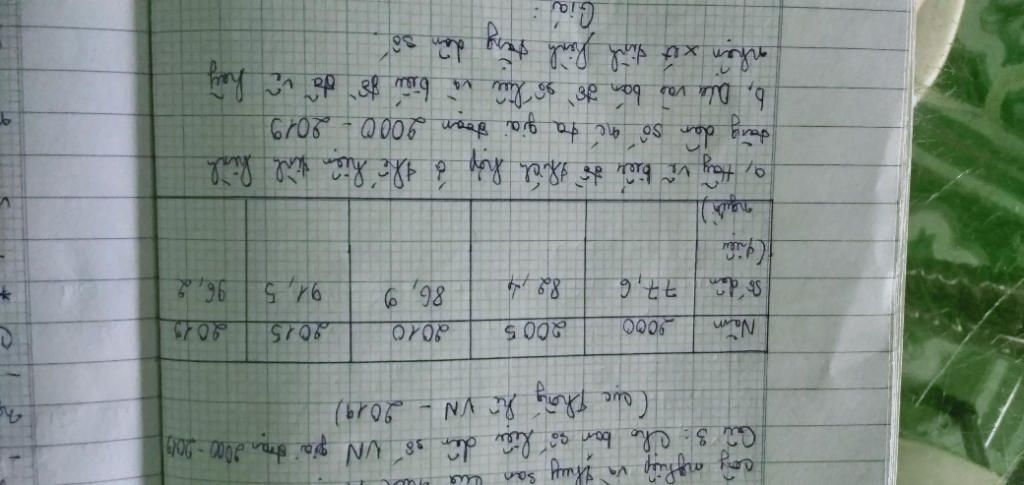 công nghiệp và thuỷ sản của nước
Câu 3: Cho bản số liệu dân số VN giai đoạn 2000-2019
(cục thống kê VN - 2019)
Năm 2000 2005 2010 2015 2019
Số dân (triệu người) 77,6 82,4 86,9 91,5 96,2
a, Hãy vẽ biểu đồ thích hợp để thể hiện tình hình
tăng dân số nc ta giai đoạn 2000 - 2019
b, Dựa vào bản đồ số liệu và biểu đồ đã vẽ hãy
nhận xét tình hình tăng dân số.
Giải: